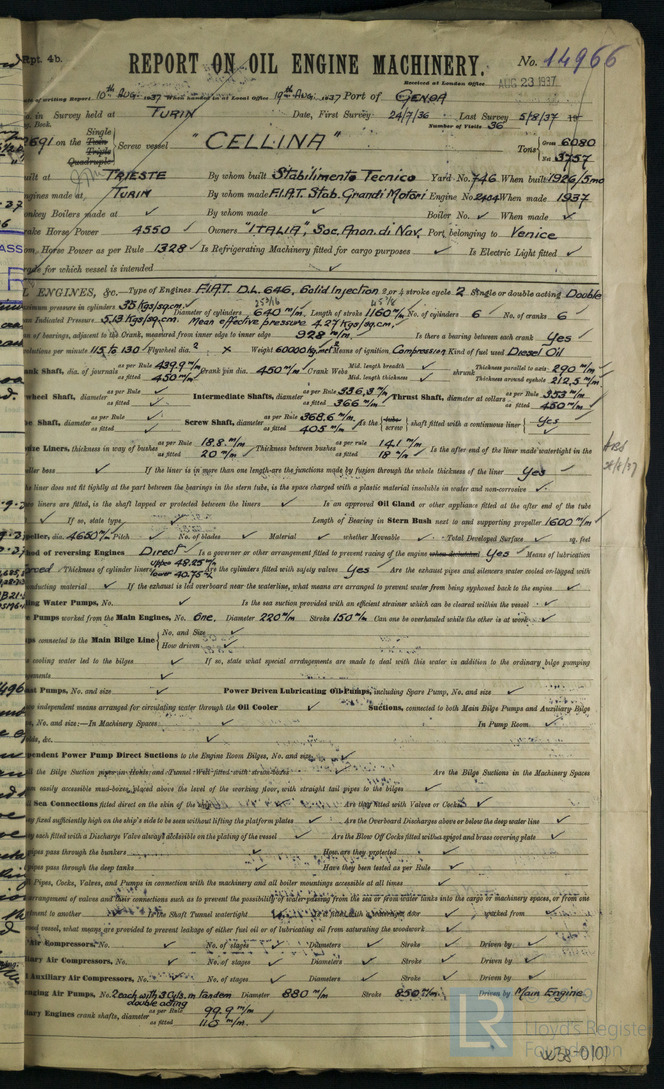 Rpt. 4b.
REPORT ON OIL ENGINE MACHINERY.
No. 14966
Received at London Office AUG 23 1937
of writing Report 10th Aug. 1937 When handed in at Local Office 19th Aug. 1937 Port of GENOA
in Survey held at TURIN Date, First Survey 24/7/36 Last Survey 5/8/37 19
Book. Number of Visits 36
691 on the Single Twin Triple Quadruple Screw vessel "CELLINA" Tons Gross 6080 Net 3757
built at TRIESTE By whom built Stabilimento Tecnico Yard No. 746 When built 1926/5mo
ngines made at TURIN By whom made F.I.A.T. Stab. Grandi Motori Engine No. 2404 When made 1937
onkey Boilers made at ✓ By whom made ✓ Boiler No. ✓ When made ✓
rake Horse Power 4550 ✓ Owners "ITALIA", Soc. Anon. di Nav. Port belonging to Venice
om. Horse Power as per Rule 1328 ✓ Is Refrigerating Machinery fitted for cargo purposes ✓ Is Electric Light fitted ✓
rade for which vessel is intended ✓
ENGINES, &c.—Type of Engines F.I.A.T. D.L. 646, Solid Injection 2 or 4 stroke cycle 2 Single or double acting Double
aximum pressure in cylinders 35 Kgs/sq.cm. Diameter of cylinders 640 m/m. Length of stroke 1160 m/m. No. of cylinders 6 No. of cranks 6
Indicated Pressure 5.13 Kgs/sq.cm. Mean effective pressure 4.27 Kgs/sq.cm.
of bearings, adjacent to the Crank, measured from inner edge to inner edge 928 m/m. Is there a bearing between each crank Yes
volutions per minute 115/6 130 Flywheel dia. Weight 60000 Kg.met² Means of ignition Compression Kind of fuel used Diesel Oil
ank Shaft, dia. of journals as per Rule 439.9 m/m as fitted 450 m/m Crank pin dia. 450 m/m Crank Webs Mid. length breadth ✓ Mid. length thickness ✓ shrunk Thickness parallel to axis 290 m/m Thickness around eyehole 212.5 m/m
wheel Shaft, diameter as per Rule ✓ as fitted ✓ Intermediate Shafts, diameter as per Rule 336.3 m/m as fitted 366 m/m Thrust Shaft, diameter at collars as per Rule 353 m/m as fitted 450 m/m
be Shaft, diameter as per Rule ✓ as fitted ✓ Screw Shaft, diameter as per Rule 368.6 m/m as fitted 405 m/m Is the tube screw shaft fitted with a continuous liner Yes ✓
nze Liners, thickness in way of bushes as per Rule 18.8 m/m as fitted 20 m/m Thickness between bushes as per rule 14.1 m/m as fitted 18 m/m Is the after end of the liner made watertight in the
eller boss ✓ If the liner is in more than one length are the junctions made by fusion through the whole thickness of the liner Yes ✓
he liner does not fit tightly at the part between the bearings in the stern tube, is the space charged with a plastic material insoluble in water and non-corrosive ✓
liners are fitted, is the shaft lapped or protected between the liners ✓ Is an approved Oil Gland or other appliance fitted at the after end of the tube
✓ If so, state type ✓ Length of Bearing in Stern Bush next to and supporting propeller 1600 m/m
peller, dia. 4650 m/m Pitch ✓ No. of blades ✓ Material ✓ whether Moveable ✓ Total Developed Surface ✓ sq. feet
hod of reversing Engines Direct Is a governor or other arrangement fitted to prevent racing of the engine when declutched Yes ✓ Means of lubrication
orced Thickness of cylinder liners upper 48.25 m/m lower 40.75 m/m Are the cylinders fitted with safety valves Yes ✓ Are the exhaust pipes and silencers water cooled or lagged with
ducting material ✓ If the exhaust is led overboard near the waterline, what means are arranged to prevent water from being syphoned back to the engine ✓
ling Water Pumps, No. ✓ Is the sea suction provided with an efficient strainer which can be cleared within the vessel ✓
Pumps worked from the Main Engines, No. One. Diameter 220 m/m Stroke 150 m/m Can one be overhauled while the other is at work ✓
ps connected to the Main Bilge Line No. and Size ✓ How driven ✓
cooling water led to the bilges ✓ If so, state what special arrangements are made to deal with this water in addition to the ordinary bilge pumping
gements ✓
ast Pumps, No. and size ✓ Power Driven Lubricating Oil Pumps, including Spare Pump, No. and size ✓
independent means arranged for circulating water through the Oil Cooler ✓ Suctions, connected to both Main Bilge Pumps and Auxiliary Bilge
, No. and size:—In Machinery Spaces ✓ In Pump Room ✓
olds, &c. ✓
pendent Power Pump Direct Suctions to the Engine Room Bilges, No. and size ✓
l the Bilge Suction pipes in Holds and Tunnel Well fitted with strum boxes ✓ Are the Bilge Suctions in the Machinery Spaces
m easily accessible mud-boxes, placed above the level of the working floor, with straight tail pipes to the bilges ✓
Sea Connections fitted direct on the skin of the ship ✓ Are they fitted with Valves or Cocks ✓
y fixed sufficiently high on the ship's side to be seen without lifting the platform plates ✓ Are the Overboard Discharges above or below the deep water line ✓
y each fitted with a Discharge Valve always accessible on the plating of the vessel ✓ Are the Blow Off Cocks fitted with a spigot and brass covering plate ✓
pipes pass through the bunkers ✓ How are they protected ✓
pipes pass through the deep tanks ✓ Have they been tested as per Rule ✓
l Pipes, Cocks, Valves, and Pumps in connection with the machinery and all boiler mountings accessible at all times ✓
arrangement of valves and their connections such as to prevent the possibility of water passing from the sea or from water tanks into the cargo or machinery spaces, or from one
rtment to another ✓ Is the Shaft Tunnel watertight ✓ Is it fitted with a watertight door ✓ worked from ✓
ood vessel, what means are provided to prevent leakage of either fuel oil or of lubricating oil from saturating the woodwork ✓
Air Compressors, No. ✓ No. of stages ✓ Diameters ✓ Stroke ✓ Driven by ✓
iary Air Compressors, No. ✓ No. of stages ✓ Diameters ✓ Stroke ✓ Driven by ✓
Auxiliary Air Compressors, No. ✓ No. of stages ✓ Diameters ✓ Stroke ✓ Driven by ✓
nging Air Pumps, No. 2 each with 3 Cyls. in tandem double acting Diameter 880 m/m Stroke 850 m/m. Driven by Main Engine
iary Engines crank shafts, diameter as per Rule 99.9 m/m as fitted 110 m/m. ✓
LR Lloyd's Register Foundation
W38-0101